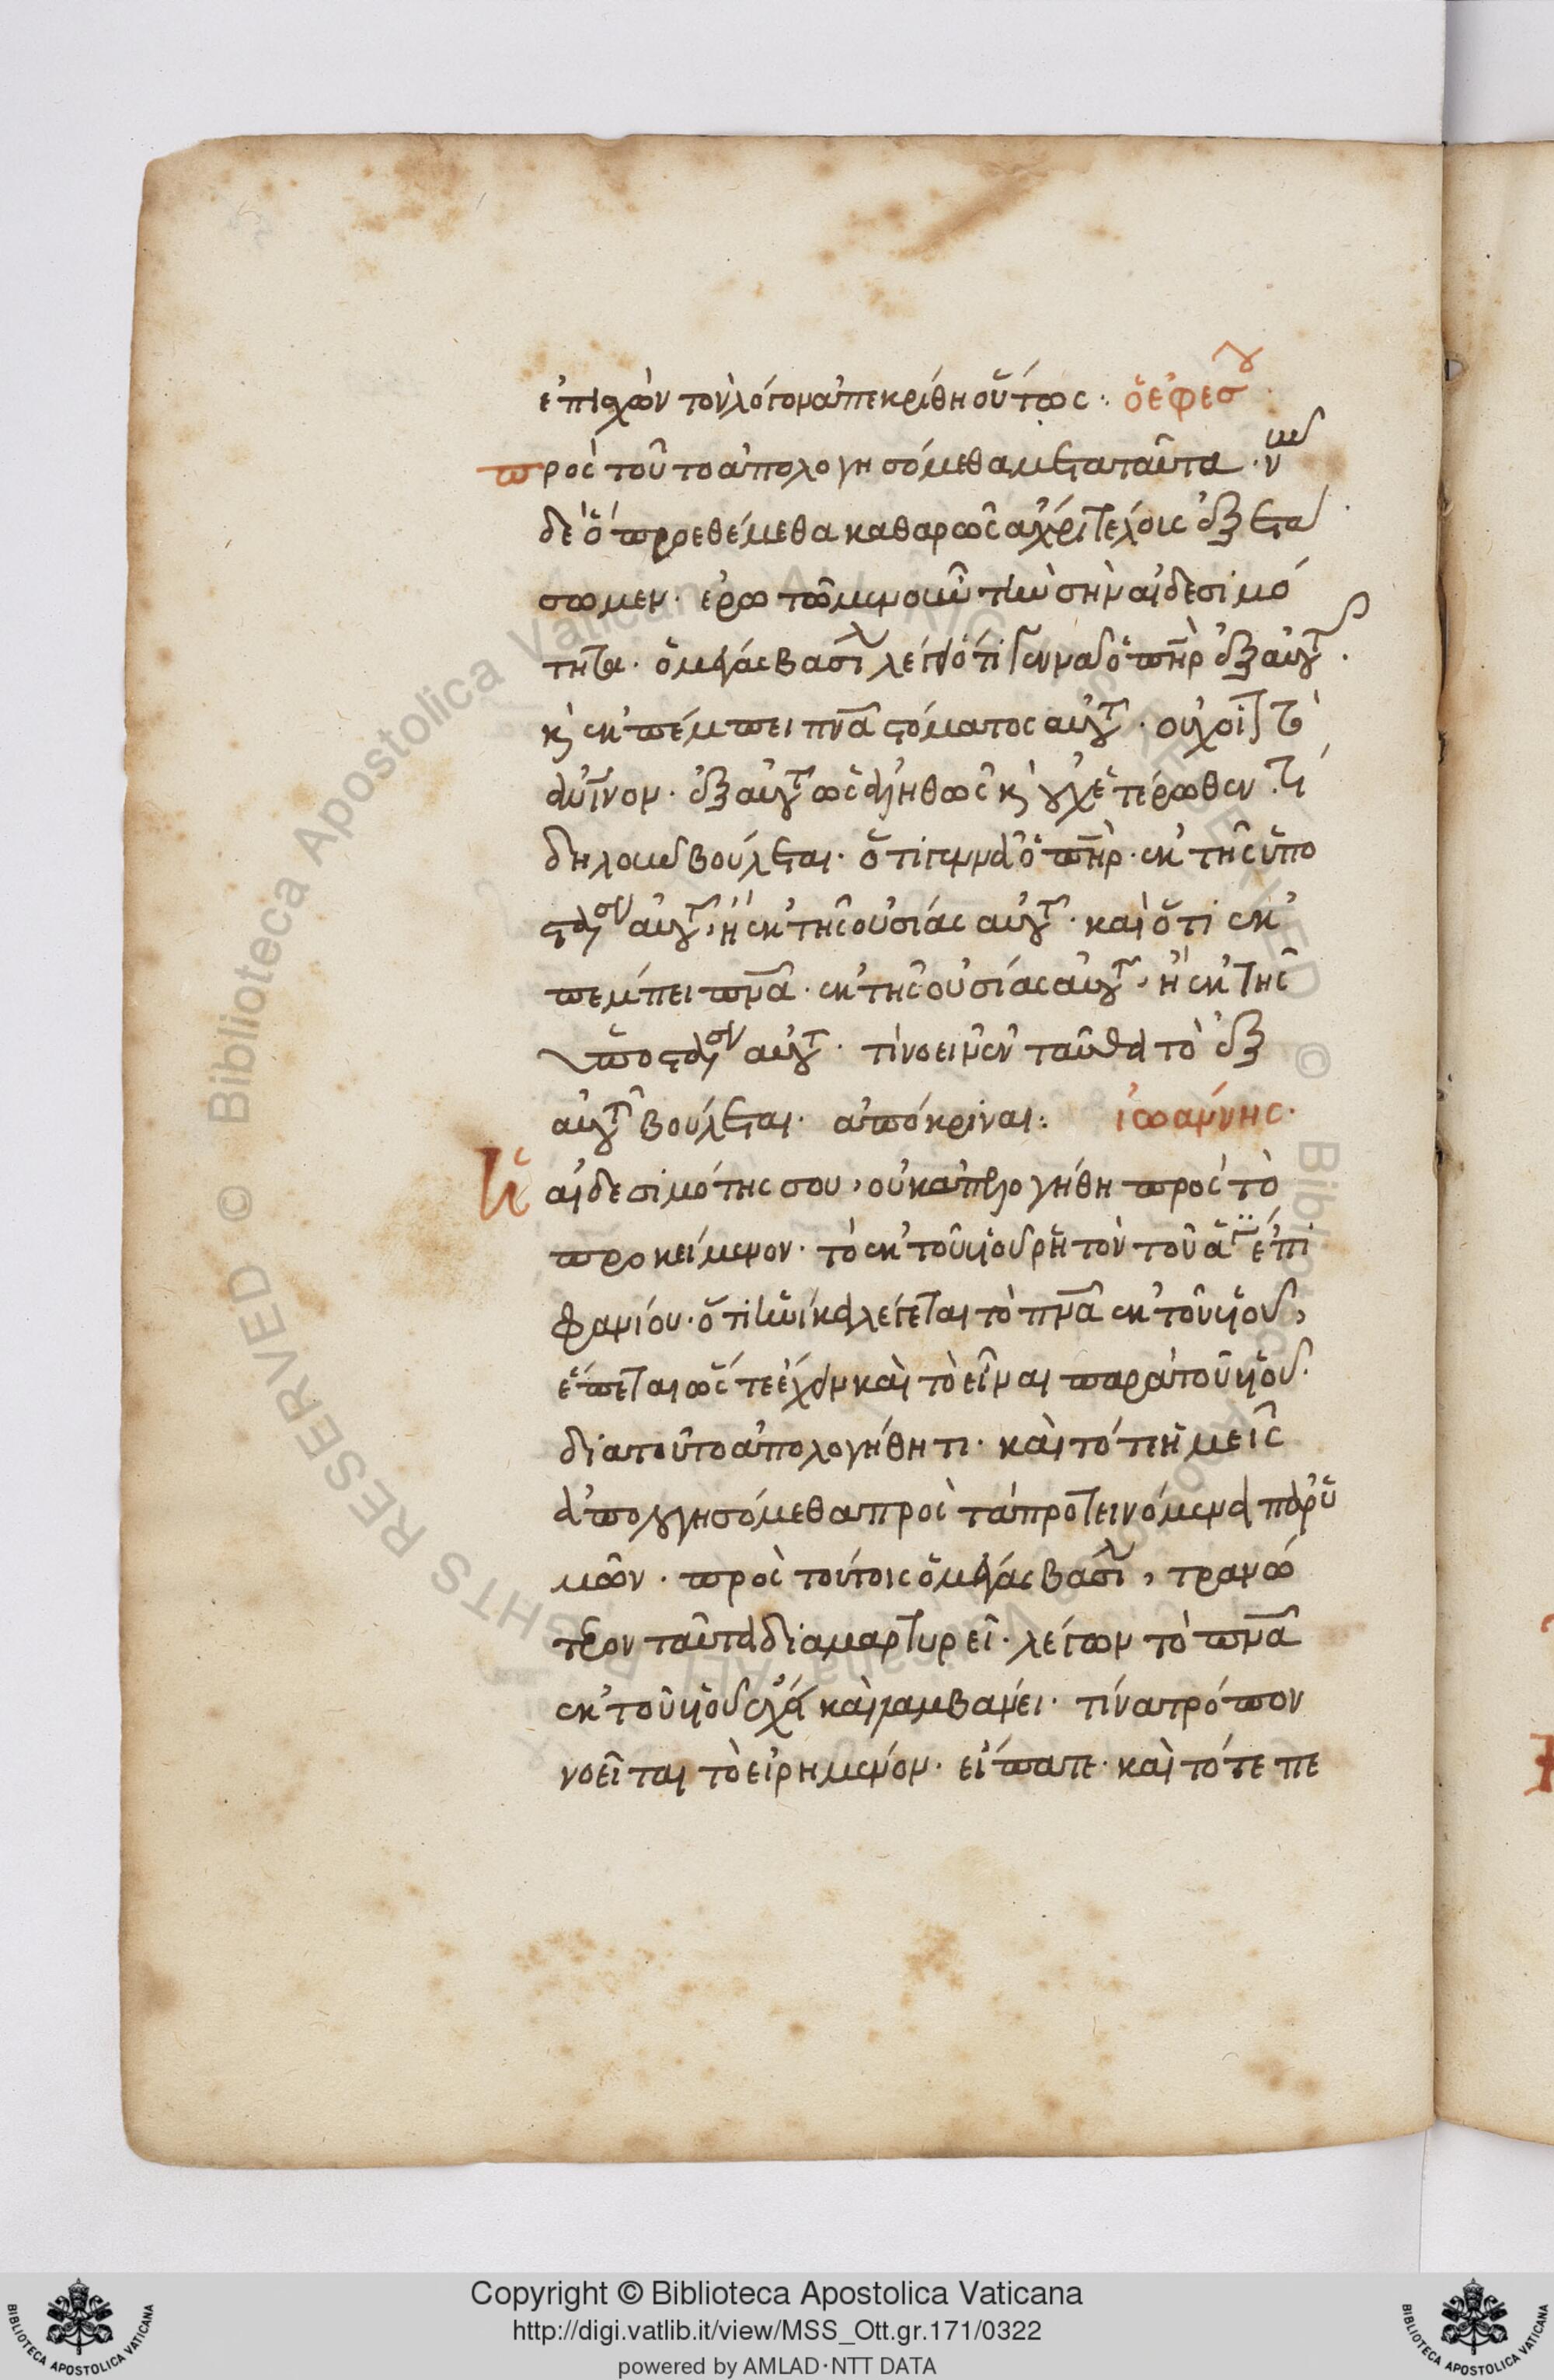 ἐπισχὼν τὸν λόγον ἀπεκρίθη οὕτως· ὁ ἐφέσου
πρὸς τοῦτο ἀπολογησόμεθα μετὰ ταῦτα· νῦν
δὲ ὃ προεθέμεθα καθαρῶς ἄχρι τέλους ἐξετά
σωμεν· ἐρωτῶμεν οὖν τὴν σὴν αἰδεσιμό
τητα· ὁ μέγας βασίλ λέγει ὅτι γεννᾶ ὁ πηρ ἐξ αὐτοῦ·
κὶ ἐκπέμπει πνᾶ στόματος αὐτοῦ· οὐχ τὸ
ἀνῖνον· ἐξ αὐτοῦ ὡς ἀληθῶς κὶ οὐχ ἑτέρωθεν· τί
δηλοῦν βούλεται· ὅτι γεννᾶ ὁ πὴρ· ἐκ τῆς ὑπο
στάσεως αὐτοῦ, ἢ ἐκ τῆς οὐσίας αὐτοῦ· καὶ ὅτι ἐκ
πέμπει πνᾶ· ἐκ τῆς οὐσίας αὐτοῦ, ἢ ἐκ τῆς
ὑποστάσεως αὐτοῦ· τί νοεῖν ἐνταῦθα τὸ ἐξ
αὐτοῦ βούλεται· ἀπόκριναι: ἰωάννης·
Ἡ αἰδεσιμότης σου, οὐκ ἀπελογήθη πρὸς τὸ
προκείμενον· τὸ ἐκ τοῦ υἱοῦ ῥητὸν τοῦ ἁγ ἐπι
φανίου· ὅτι ἡνίκα λέγεται τὸ πνᾶ ἐκ τοῦ υἱοῦ,
ἕπεται ὥστε ἔχειν καὶ τὸ εἶναι παρὰ τοῦ υἱοῦ·
διὰ τοῦτο ἀπολογήθητι· καὶ τότε ἡμεῖς
ἀπολογησόμεθα πρὸς τὰ προτεινόμενα παρ' ὑ
μῶν· πρὸς τούτοις ὁ μέγας βασίλ, τρανώ
τερον ταῦτα διαμαρτυρεῖ· λέγων τὸ πνᾶ
ἐκ τοῦ υἱοῦ ἔχει καὶ λαμβάνει· τίνα τρόπον
νοεῖται τὸ εἰρημένον· εἴπατε· καὶ τότε πε
Copyright © Biblioteca Apostolica Vaticana
http://digi.vatlib.it/view/MSS_Ott.gr.171/0322
powered by AMLAD·NTT DATA